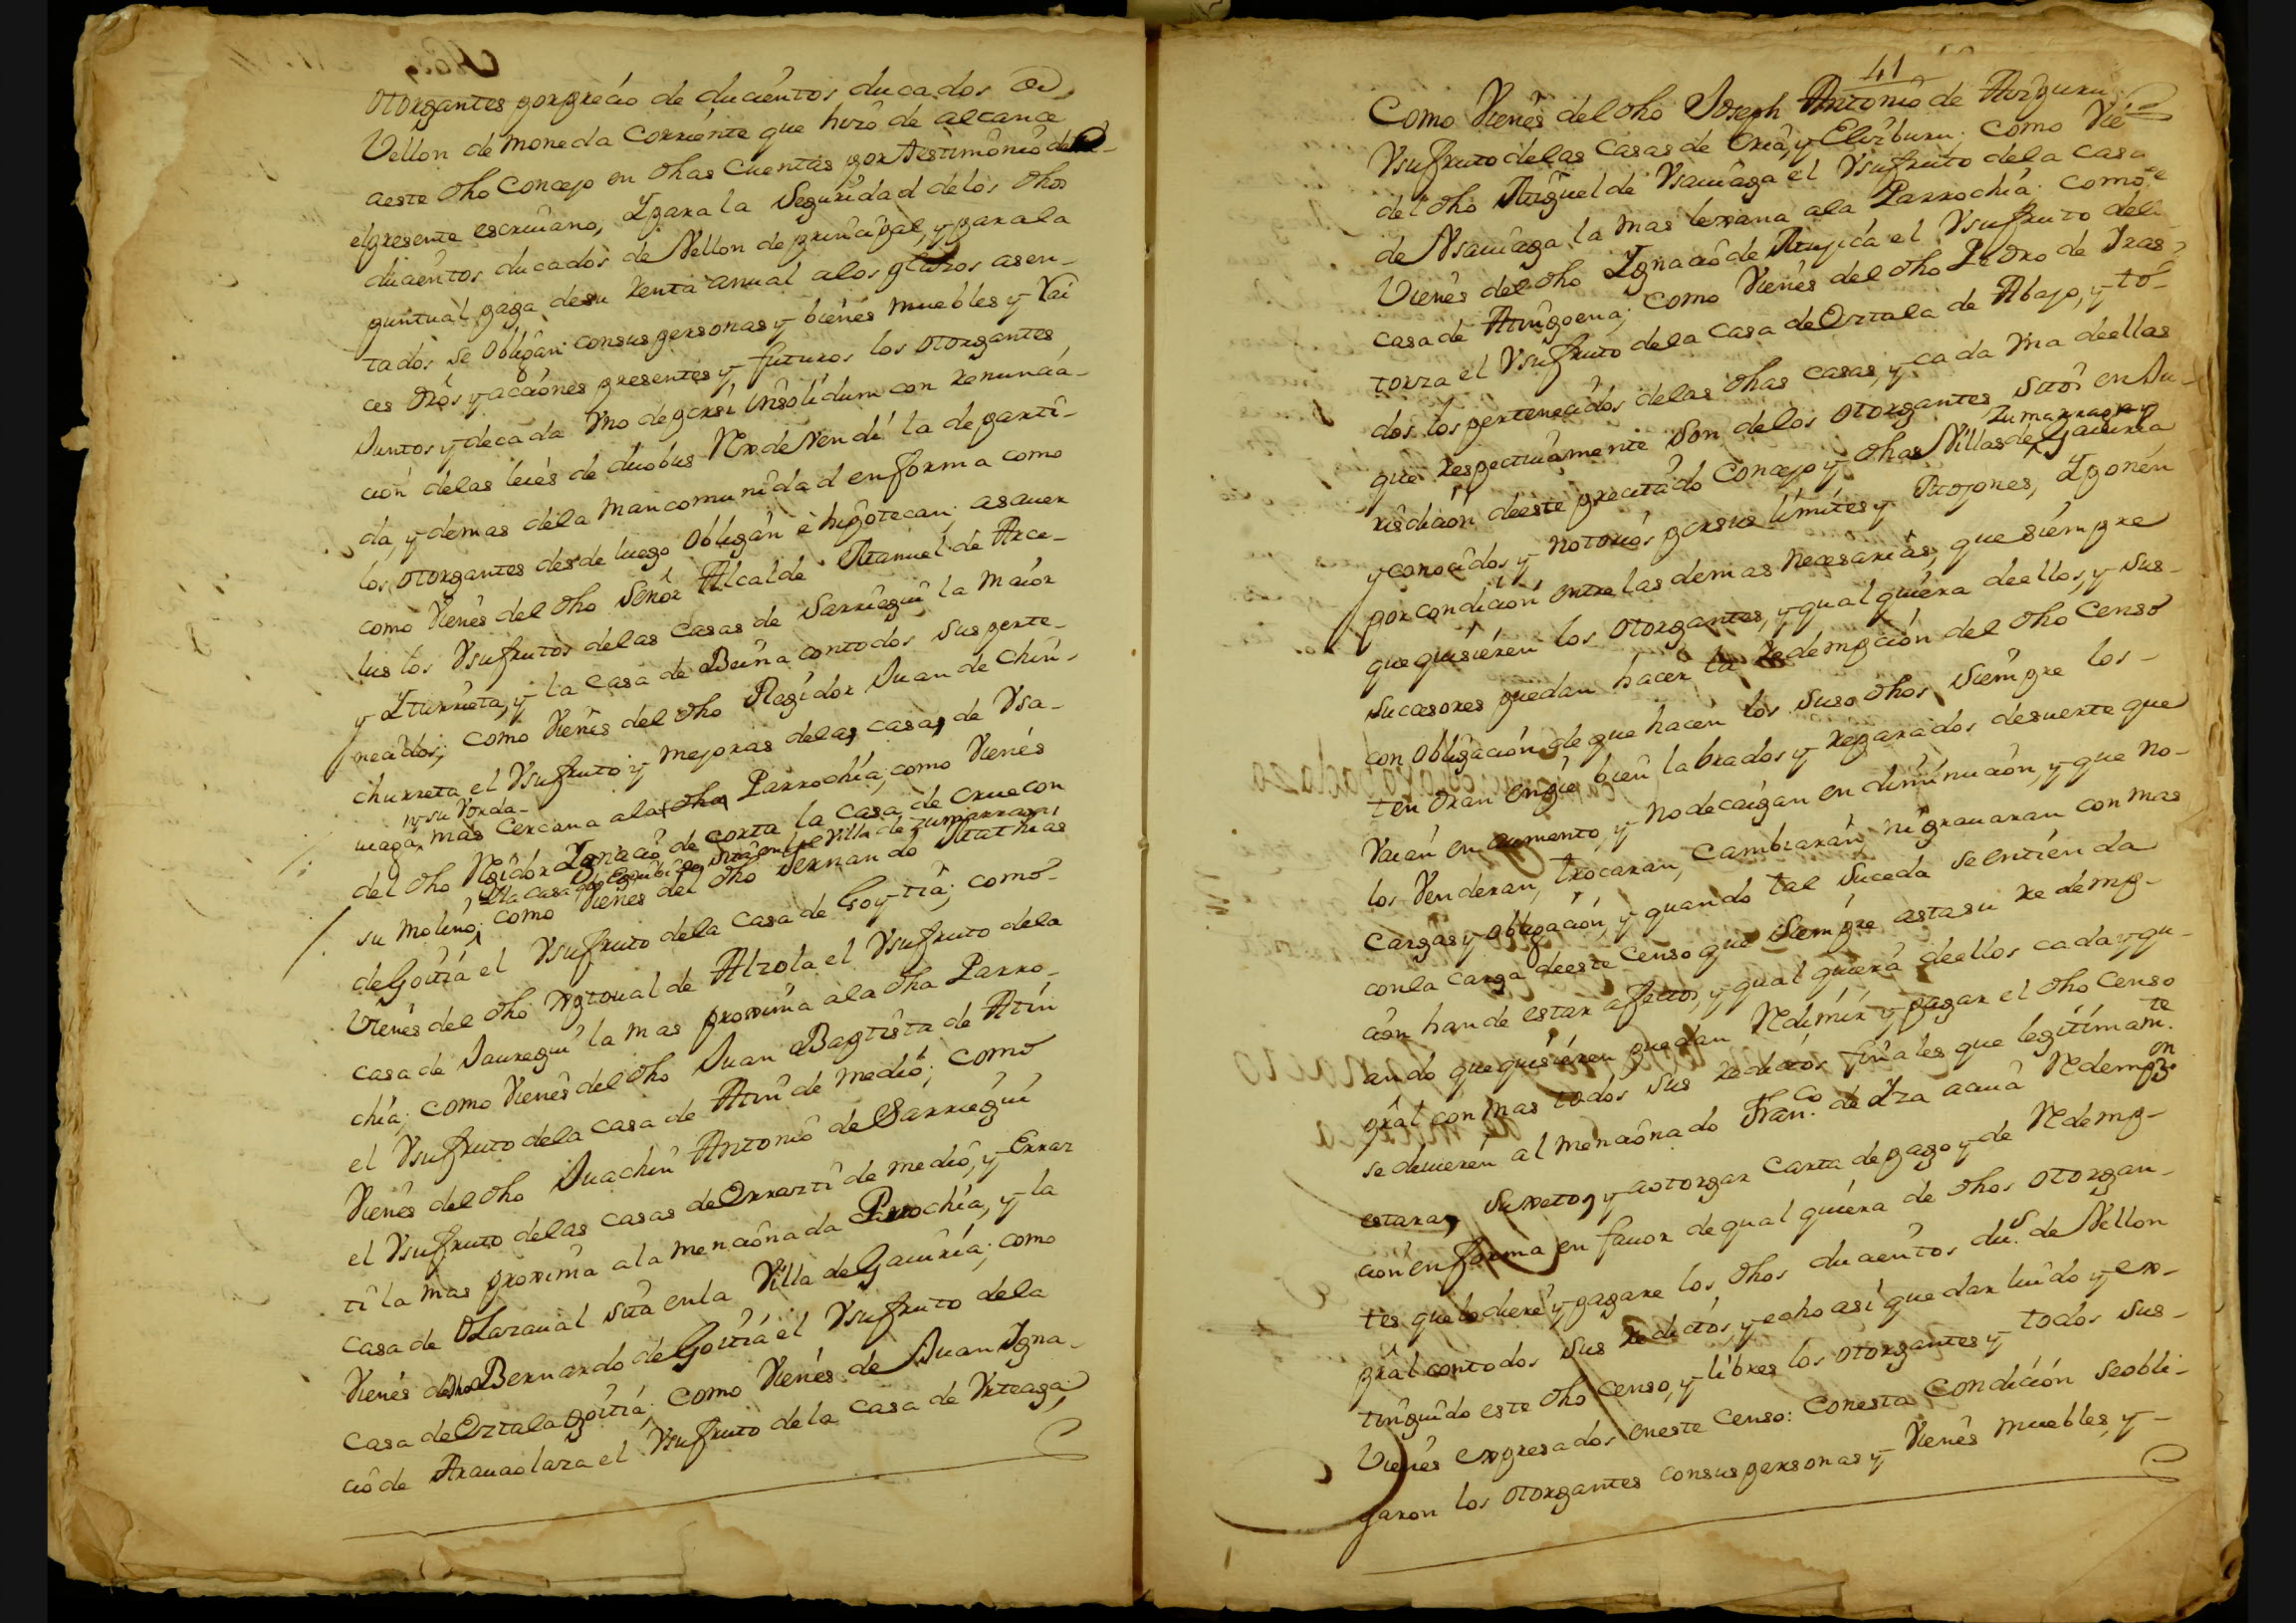 otorgantes por precio de ducientos ducados de
Vellon de moneda corriente que hizo de alcance
aeste dho Concejo en dhas Cuentas por testimonio de mi
el presente escriuano, Y para la Seguridad delos dhos
ducientos ducados de Vellon de principal, y para la
puntual paga desu Renta anual alos plazos asen-
tados se obligan con sus personas y bienes muebles y Rai
ces dros y acciones presentes y futuros los otorgantes
Juntos y de cada Vno de por si insolidum con renuncia-
cion delas leies de duobus Rex deVendi la de parti-
da, y demas dela mancomunidad en forma como
los otorgantes desde luego obligan è hipotecan; asauer
como Vienes del dho Señor Alcalde Manuel de Arce-
lus los Vsufrutos delas Casas de Sarriegui la Maior
y Yturrieta, y la Casa de Beina con todos sus perte-
necidos; como Vienes del dho Regidor Juan de Chin-
churreta el Vsufruto y mejoras delas casas de Ysa-
y su Vorda-
uaga mas Cercana ala dha Parrochia; como Vienes
del dho Regidor Ygnacio de corta la Casa de Crue con
Yla Casa de sita en la Villa de Zumarraga
su molino; como Vienes del dho Fernando Mathias
de Goitia el Vsufruto dela Casa de Goytia; como
Vienes del dho de Alzola el Vsufruto dela
casa de Jauregui la mas proxima ala dha Parro-
chia; como Vienes del dho Juan Baptista de Atin
el Vsufruto dela casa de Atin de medio; como
Vienes del dho Juachin Antonio de Sarriegui
el Vsufruto delas casas de Errazti de medio, y Erraz
ti la mas proxima ala mencionada Parrochia, y la
casa de Olazaual sita enla Villa de Gauiria; como
Vienes de dho Bernardo de Goitia el Vsufruto dela
Casa de Oztalagoitia; como Vienes de Juan Ygna-
cio de Araunolaza el Vsufruto dela casa de Vrteaga;
41
Como Vienes del dho Joseph Antonio de
Vsufruto delas Casas de Cria, y Elizburu; como Vie
del dho Miguel de Ysauiaga el Vsufruto dela casa
de Ysauiaga la mas lexana ala Parrochia; como
Vienes del dho Ygnacio de Mujica el Vsufruto dela
casa de Atingoena; como Vienes del dho Pedro de Yras-
torza el Vsufruto dela Casa de Oztala de Abajo, y to-
dos los pertenecidos delas dhas casas, y cada Vna deellas
que respectiuamente son delos otorgantes sitos en Ju-
Zumarraga y
risdicion deeste precitado Concejo y dhas Villas de Gauiria
y conocidos y notorios por sus limites y Mojones, Y ponen
por condicion entre las demas necesarias, que siempre
que quisieren los otorgantes, y qual quiera deellos, y sus
sucesores puedan hacer la redempcion del dho Censo
con obligacion de que hacen los suso dhos siempre los
tendran enpie bien labrados y reparados desuerte que
Vaian en aumento, y no decaigan en diminucion, y que no
los Venderan, trocaran, cambiaran, ni grauaran con mas
Cargas y obligacion, y quando tal suceda se entienda
conla carga deeste Censo que siempre asta su redemp-
cion hande estar afectos, y qual quiera deellos cada y qu-
ando que quisieren puedan Redimir y pagar el dho Censo
pral con mas todos sus redictos finales que legitimamte.
se deuieren al mencionado Franco. de Yza acuia Redempon.
estaran suxetos y aotorgar Carta de pago y de Redemp-
cion en forma en fauor de qual quiera de dhos otorgan-
tes que lo diere y pagare los dhos ducientos dus. de Vellon
pral con todos sus redictos, y echo asi quedar luido y ex-
tinguido este dho Censo, y libres los otorgantes y todos sus
Vienes expresados eneste Censo: Conesta Condicion seobli-
garon los otorgantes consus personas y Vienes muebles, y